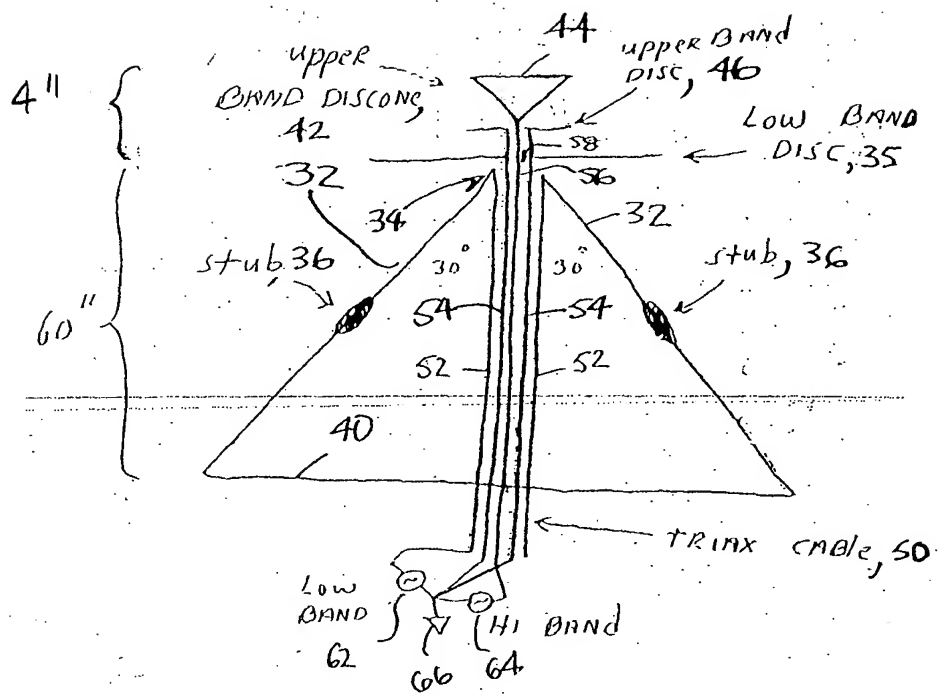 44
upper
BAND DISCONE,
42
upper BAND
DISC, 46
4"
LOW BAND
DISC, 35
58
56
32
34
32
stub, 36
30°
30°
stub, 36
54
54
60"
52
52
40
TRIAX CABLE, 50
LOW
BAND
62
HI BAND
66
64